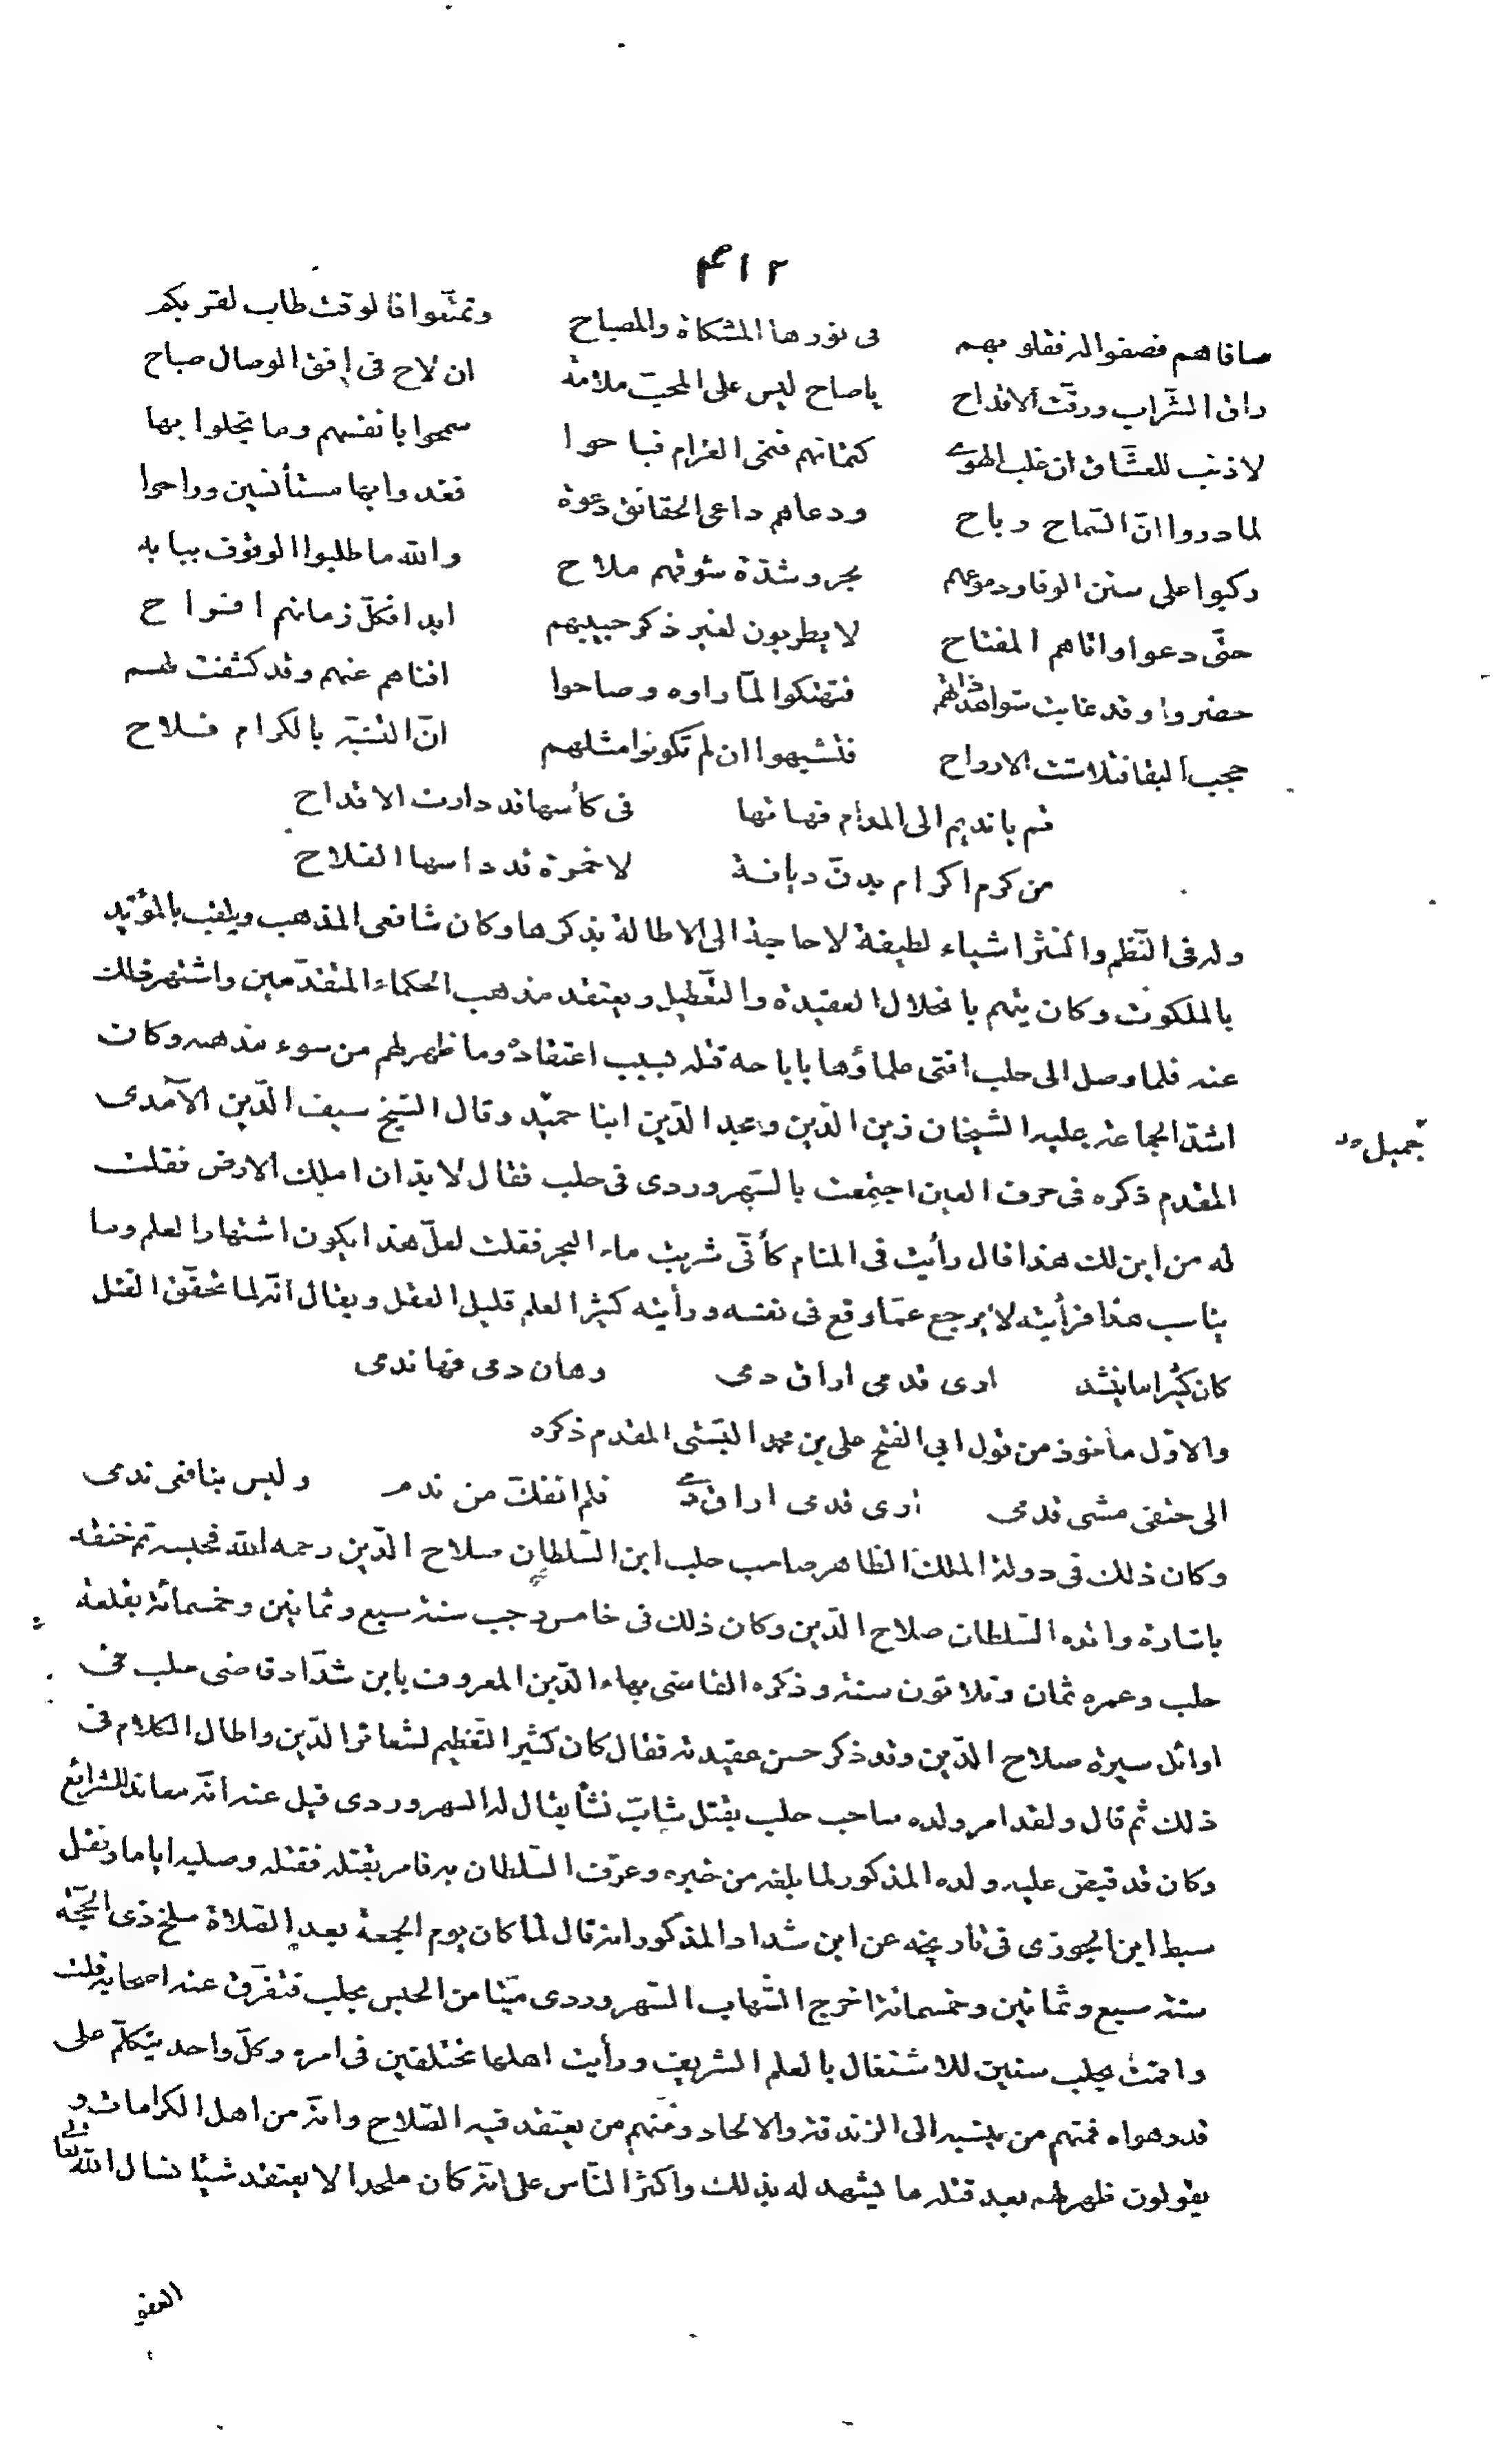 ٤١٢
صافاهم فصفوا له فقلوبهم في نورها المشكاة والمصباح وتمتّعوا فالوقت طاب لقربكم
راق الشّراب ورقّت الاقداح ياصاح ليس على المحبّ ملامة ان لاح في افق الوصال صباح
لا ذنب للعشّاق ان غلب الهوى كتمانهم فنمى الغرام فباحوا سمحوا بانفسهم وما بخلوا بها
لما دروا انّ السّماح رباح ودعاهم داعى الحقائق دعوة فغدوا بها مستأنسين وراحوا
ركبوا على سنن الوفا ودموعهم بحر وشدّة شوقهم ملاح والله ما طلبوا الوقوف ببابه
حتّى دعوا واتاهم المفتاح لا يطربون لغير ذكر حبيبهم ابدا فكلّ زمانهم افراح
حضروا وقد غابت شواهد ذاتهم فتهتكوا لمّا راوه وصاحوا افناهم عنهم وقد كشفت لهم
حجب البقا فتلاشت الارواح فتشبهوا ان لم تكونوا مثلهم انّ التشبّه بالكرام فلاح
قم ياندیم الى المدام فهاتها في كأسها قد دارت الاقداح
من كرم اكرام بدنّ ديانة لا خمرة قد داسها الفلاح
وله في النّظم والنثر اشياء لطيفة لا حاجة الى الاطالة بذكرها وكان شافعى المذهب ويلقب بالمؤيّد
بالملكوت وكان يتهم بانحلال العقيدة والتعّطيل ويعتقد مذهب الحكماء المتقدّمين واشتهر ذلك
عنه فلما وصل الى حلب افتى علماؤها باباحه قتله بسبب اعتقاده وما ظهر لهم من سوء مذهبه وكان
اشدّ الجماعة عليه الشيخان زين الدّين ومجد الدّين ابنا حميد وقال الشّيخ سيف الدّين الآمدى
جميل
المقدم ذكره في حرف العين اجتمعت بالسّهروردى في حلب فقال لا بدّ ان املك الارض فقلت
له من اين لك هذا قال رأيت في المنام كأنّى شربت ماء البحر فقلت لعلّ هذا يكون اشتهار العلم وما
يناسب هذا فرأيته لا يرجع عمّا وقع في نفسه ورأيته كثير العلم قليل العقل ويقال انّه لما تحقّق القتل
كان كثيرا ما ينشد ارى قدمى اراق دمى وهان دمى فها ندمى
والاوّل مأخوذ من قول ابي الفتح على بن محمد البستى المقدم ذكره
الى حتفى مشى قدمى ارى قدمى اراق دمى فلم انفكّ من ندم وليس بنافعى ندمى
وكان ذلك في دولة الملك الظاهر صاحب حلب ابن السّلطان صلاح الدّين رحمه الله فحبسه ثم خنقه
باشارة والده السّلطان صلاح الدّين وكان ذلك في خامس رجب سنة سبع وثمانين وخمسمائة بقلعة
حلب وعمره ثمان وثلاثون سنة وذكره القاضى بهاء الدّين المعروف بابن شدّاد قاضى حلب في
اوائل سيرة صلاح الدّين وقد ذكر حسن عقيدته فقال كان كثير التّعظيم لشعائر الدّين واطال الكلام في
ذلك ثم قال ولقد امر ولده صاحب حلب بقتل شابّ نشأ يقال له السهروردى قيل عنه انّه معاند للشرايع
وكان قد قبض عليه ولده المذكور لما بلغه من خبره وعرّف السّلطان به فامر بقتله فقتله وصلبه اياما ونقل
سبط ابن الجوزى في تاريخه عن ابن شداد المذكور انه قال لمّا كان يوم الجمعة بعد الصّلاة سلخ ذى الحجّة
سنة سبع وثمانين وخمسمائة اخرج الشّهاب السّهروردى ميّتا من الحبس بحلب فتفرّق عنه اصحابه قلت
واقمت بحلب سنين للاشتغال بالعلم الشريف ورأيت اهلها مختلفين في امره وكلّ واحد يتكلّم على
قدر هواه فمنهم من ينسبه الى الزندقة والالحاد ومنهم من يعتقد فيه الصّلاح وانّه من اهل الكرامات و
يقولون ظهر لهم بعد قتله ما يشهد له بذلك واكثر النّاس على انّه كان ملحدا لا يعتقد شيئا نسال الله تعالى
العفو